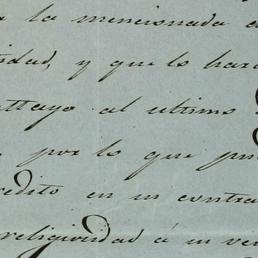 a la mencionada
idad, y que lo hara
attayo al ultimo
por lo que pu
redito en su contra
religiosidad á su ve